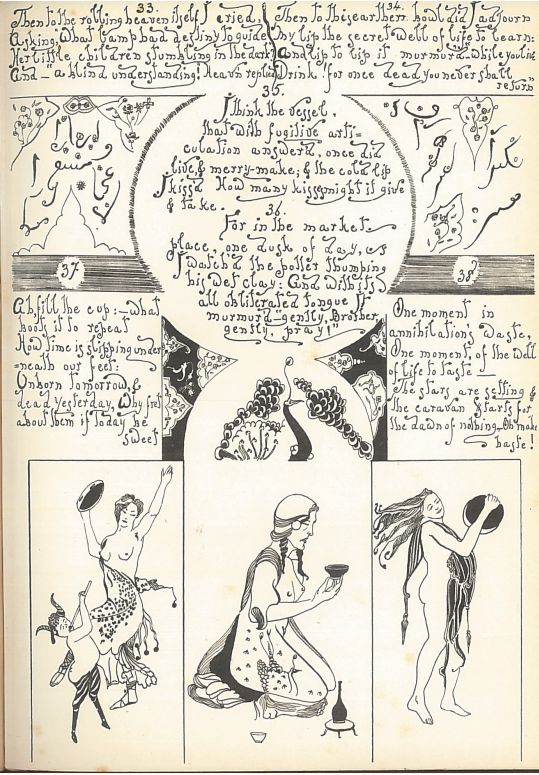 33.
Then to the rolling heaven itself I cried,
Asking, What lamp had destiny to guide
Her little children stumbling in the dark?
And - "a blind understanding! Heav'n replied
34.
Then to this earthern bowl did I adjourn
My lip the secret well of life to learn:
And lip to lip it murmur'd - While you live
Drink! for once dead you never shall
return
35.
I think the vessel,
that with fugitive arti=
culation answer'd, once did
live, & merry-make; & the cold lip
I kiss'd How many kisses might it give
& take.
36.
For in the market
place, one dusk of day,
I watch'd the potter thumping
his wet clay: And with its
all obliterated tongue It
murmur'd "gently, Brother,
gently, pray!"
37
Ah, fill the cup: - what
boots it to repeat
How time is slipping under=
=neath our feet:
Unborn tomorrow, &
dead yesterday, Why fret
about them if today be
sweet
38
One moment in
annihilation's waste,
One moment, of the well
of life to taste -
The stars are setting &
the caravan starts for
the dawn of nothing - Oh make
haste!